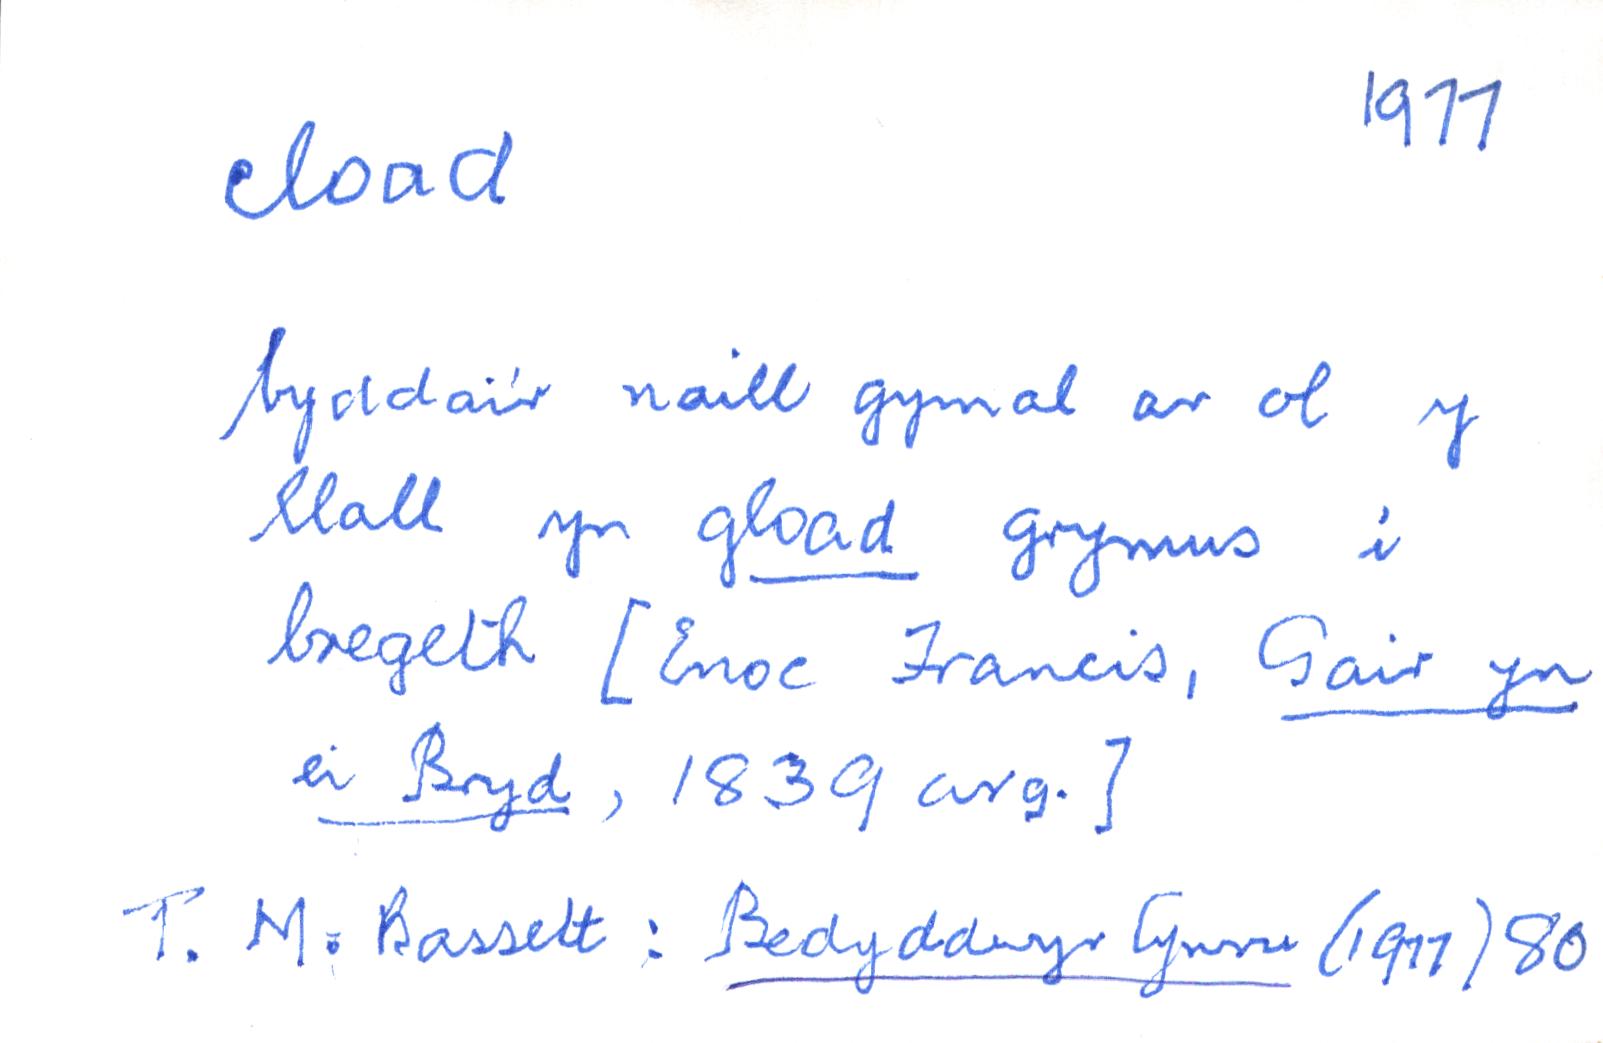 1977
cload
byddai'r naill gymal ar ol y
llall yn gload grymus i
bregeth [Enoc Francis, Gair yn
ei Bryd, 1839 arg.]
T. M. Bassett : Bedyddwyr Cymru (1977) 80